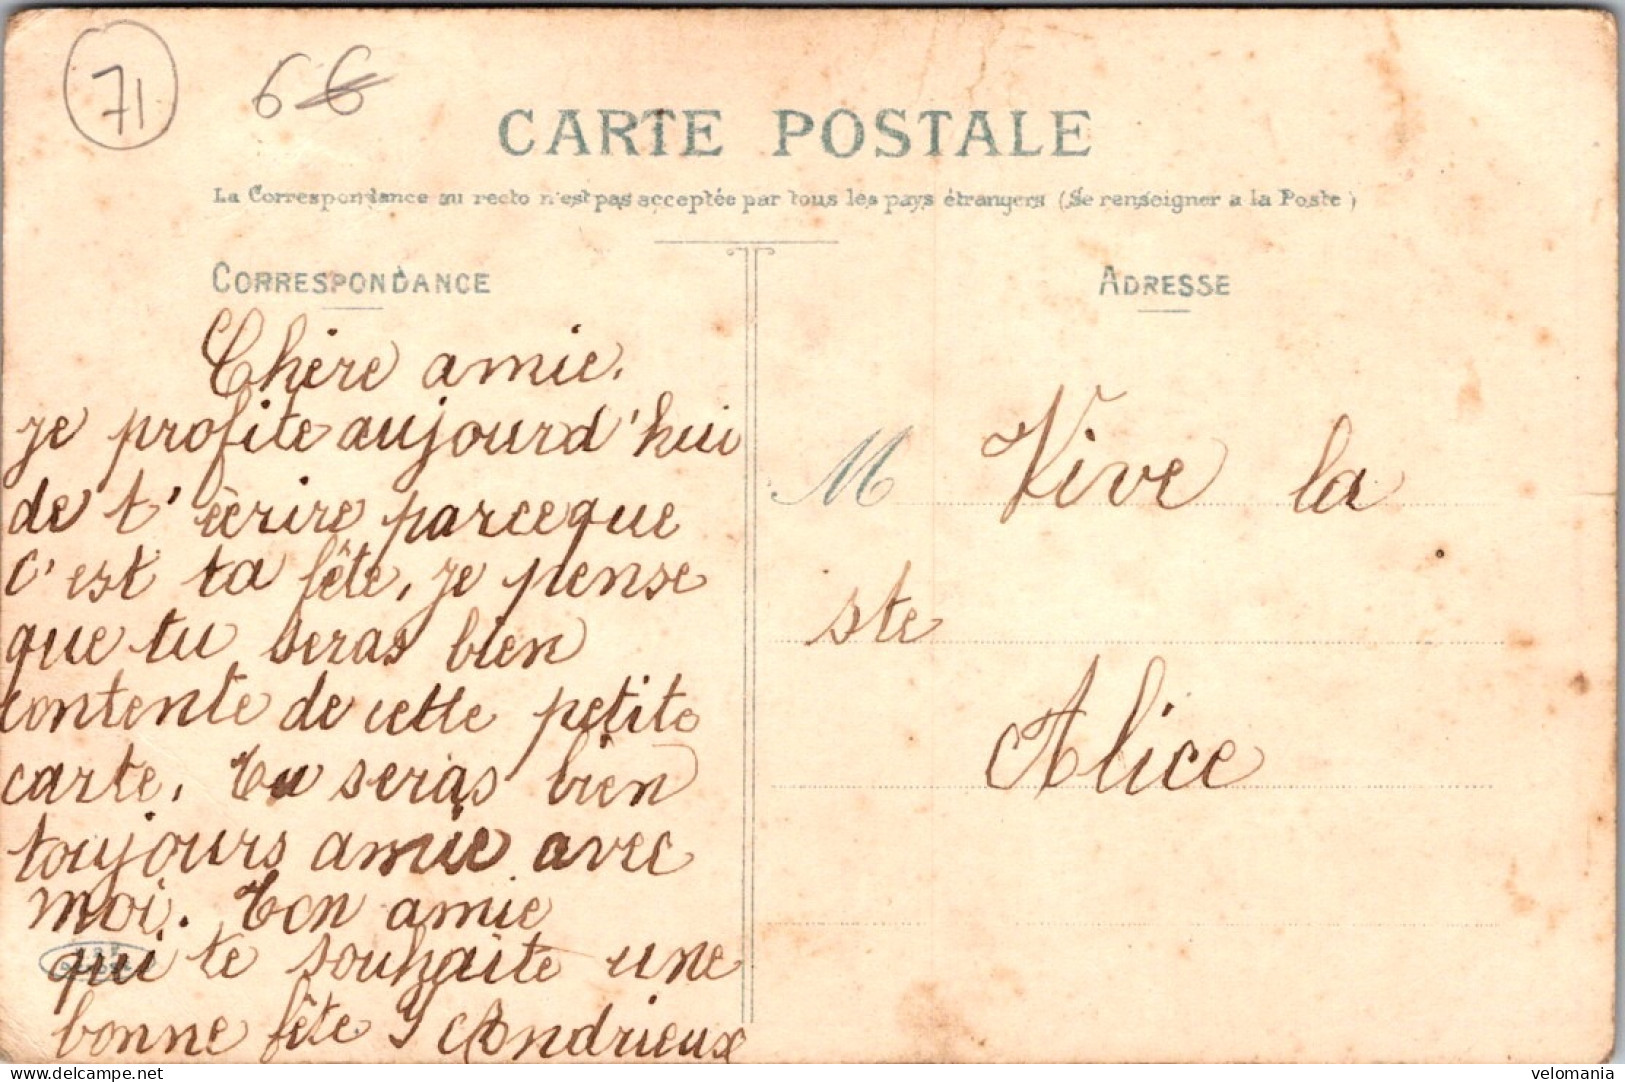 71
66
CARTE POSTALE
La Correspondance au recto n'est pas acceptée par tous les pays étrangers (Se renseigner a la Poste)
CORRESPONDANCE
Chère amie.
je profite aujourd'hui
de t'ècrire parceque
c'est ta fête, je pense
que tu seras bien
contente de cette petite
carte. Tu seras bien
toujours amie avec
moi. Ton amie
qui te souhaite une
bonne fête J Andrieux
ADRESSE
M Vive la
ste
Alice
delcampe.net
velomania